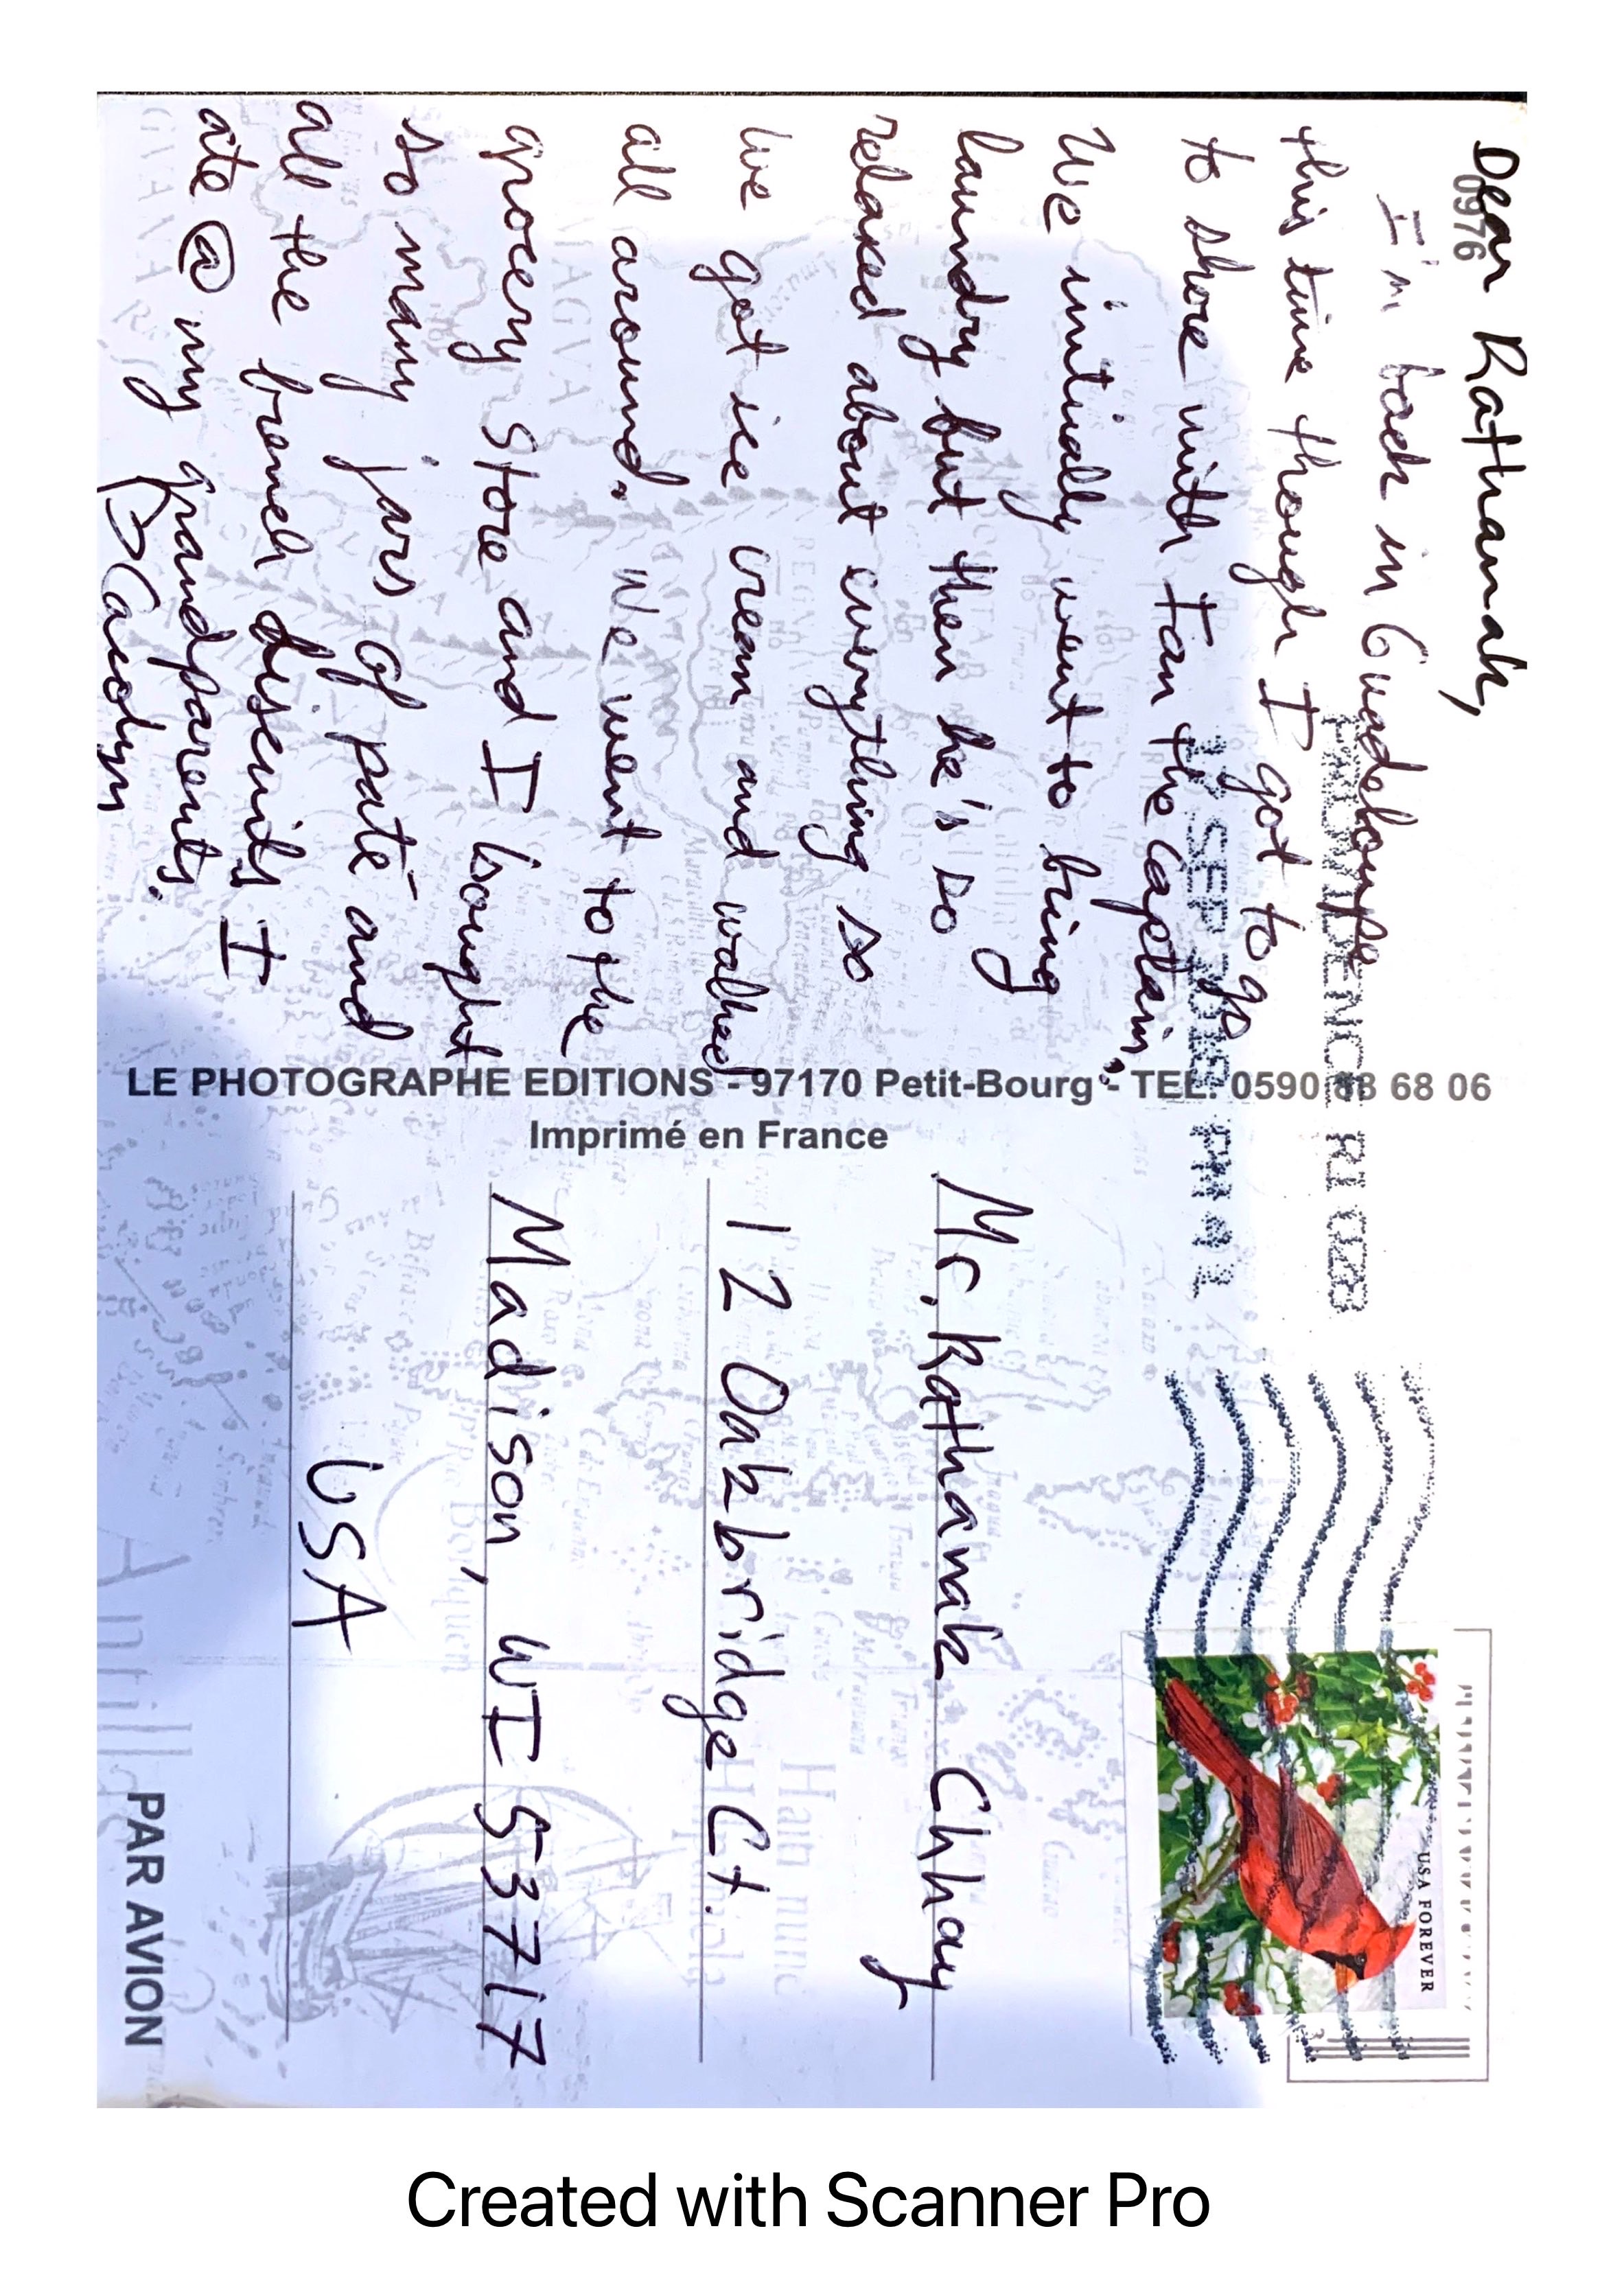 Dear Rathanak,
0976
I'm back in Guadeloupe
this time though I got to go
to shore with Ian the captain.
We initially went to bring
laundry but then he's so
relaxed about everything so
we got ice cream and walked
all around. We went to the
grocery store and I bought
so many jars of pate and
all the french biscuits I
ate @ my grandparents.
PROVIDENCE RI 028
SEP PM 4 L
LE PHOTOGRAPHE EDITIONS - 97170 Petit-Bourg - TEL. 0590 68 06
Imprimé en France
USA FOREVER
Mr. Rathanak Chhay
12 Oakbridge Ct.
Madison, WI 53717
USA
PAR AVION
Created with Scanner Pro